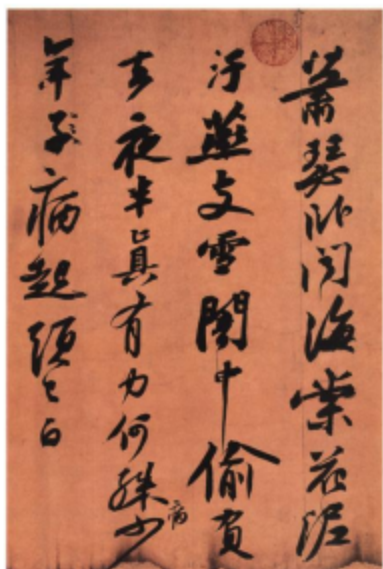 蕭瑟臥聞海棠花泥
汙燕支雪闇中偷負
去夜半真有力何殊少
病
年子病起須已白